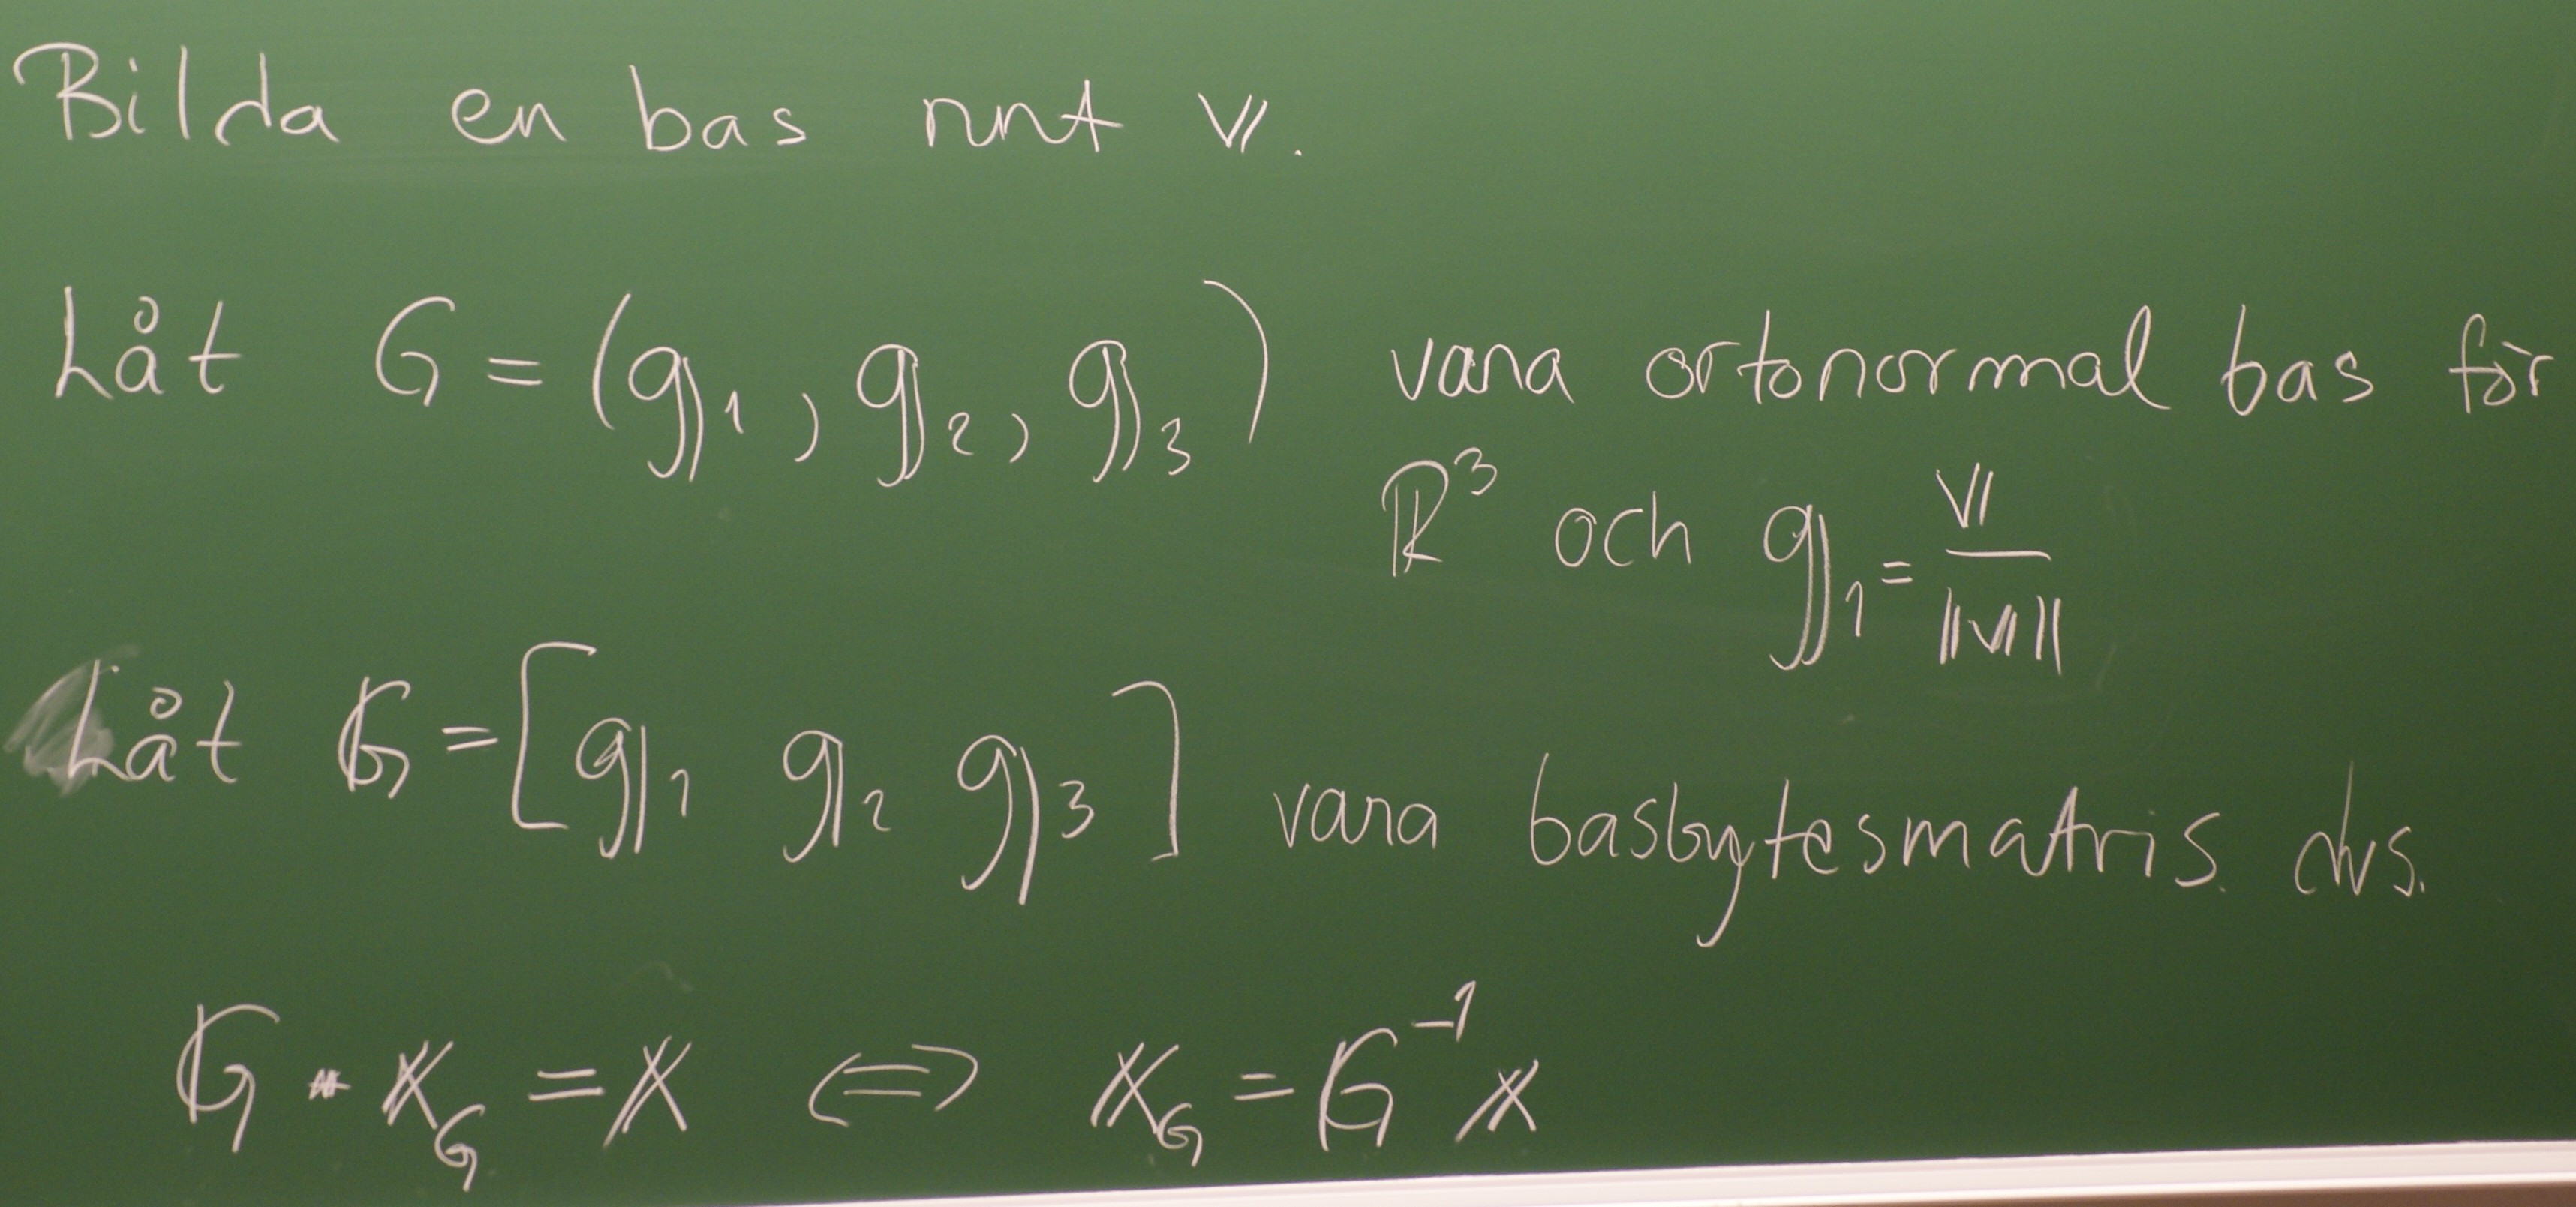 Bilda en bas runt 𝕧.
Låt G = (𝕘₁, 𝕘₂, 𝕘₃) vara ortonormal bas för
ℝ³ och 𝕘₁ = 𝕧 / ‖𝕧‖
Låt 𝔾 = [𝕘₁ 𝕘₂ 𝕘₃] vara basbytesmatris. dvs.
𝔾 · 𝕩_G = 𝕩 ⇔ 𝕩_G = 𝔾⁻¹ 𝕩